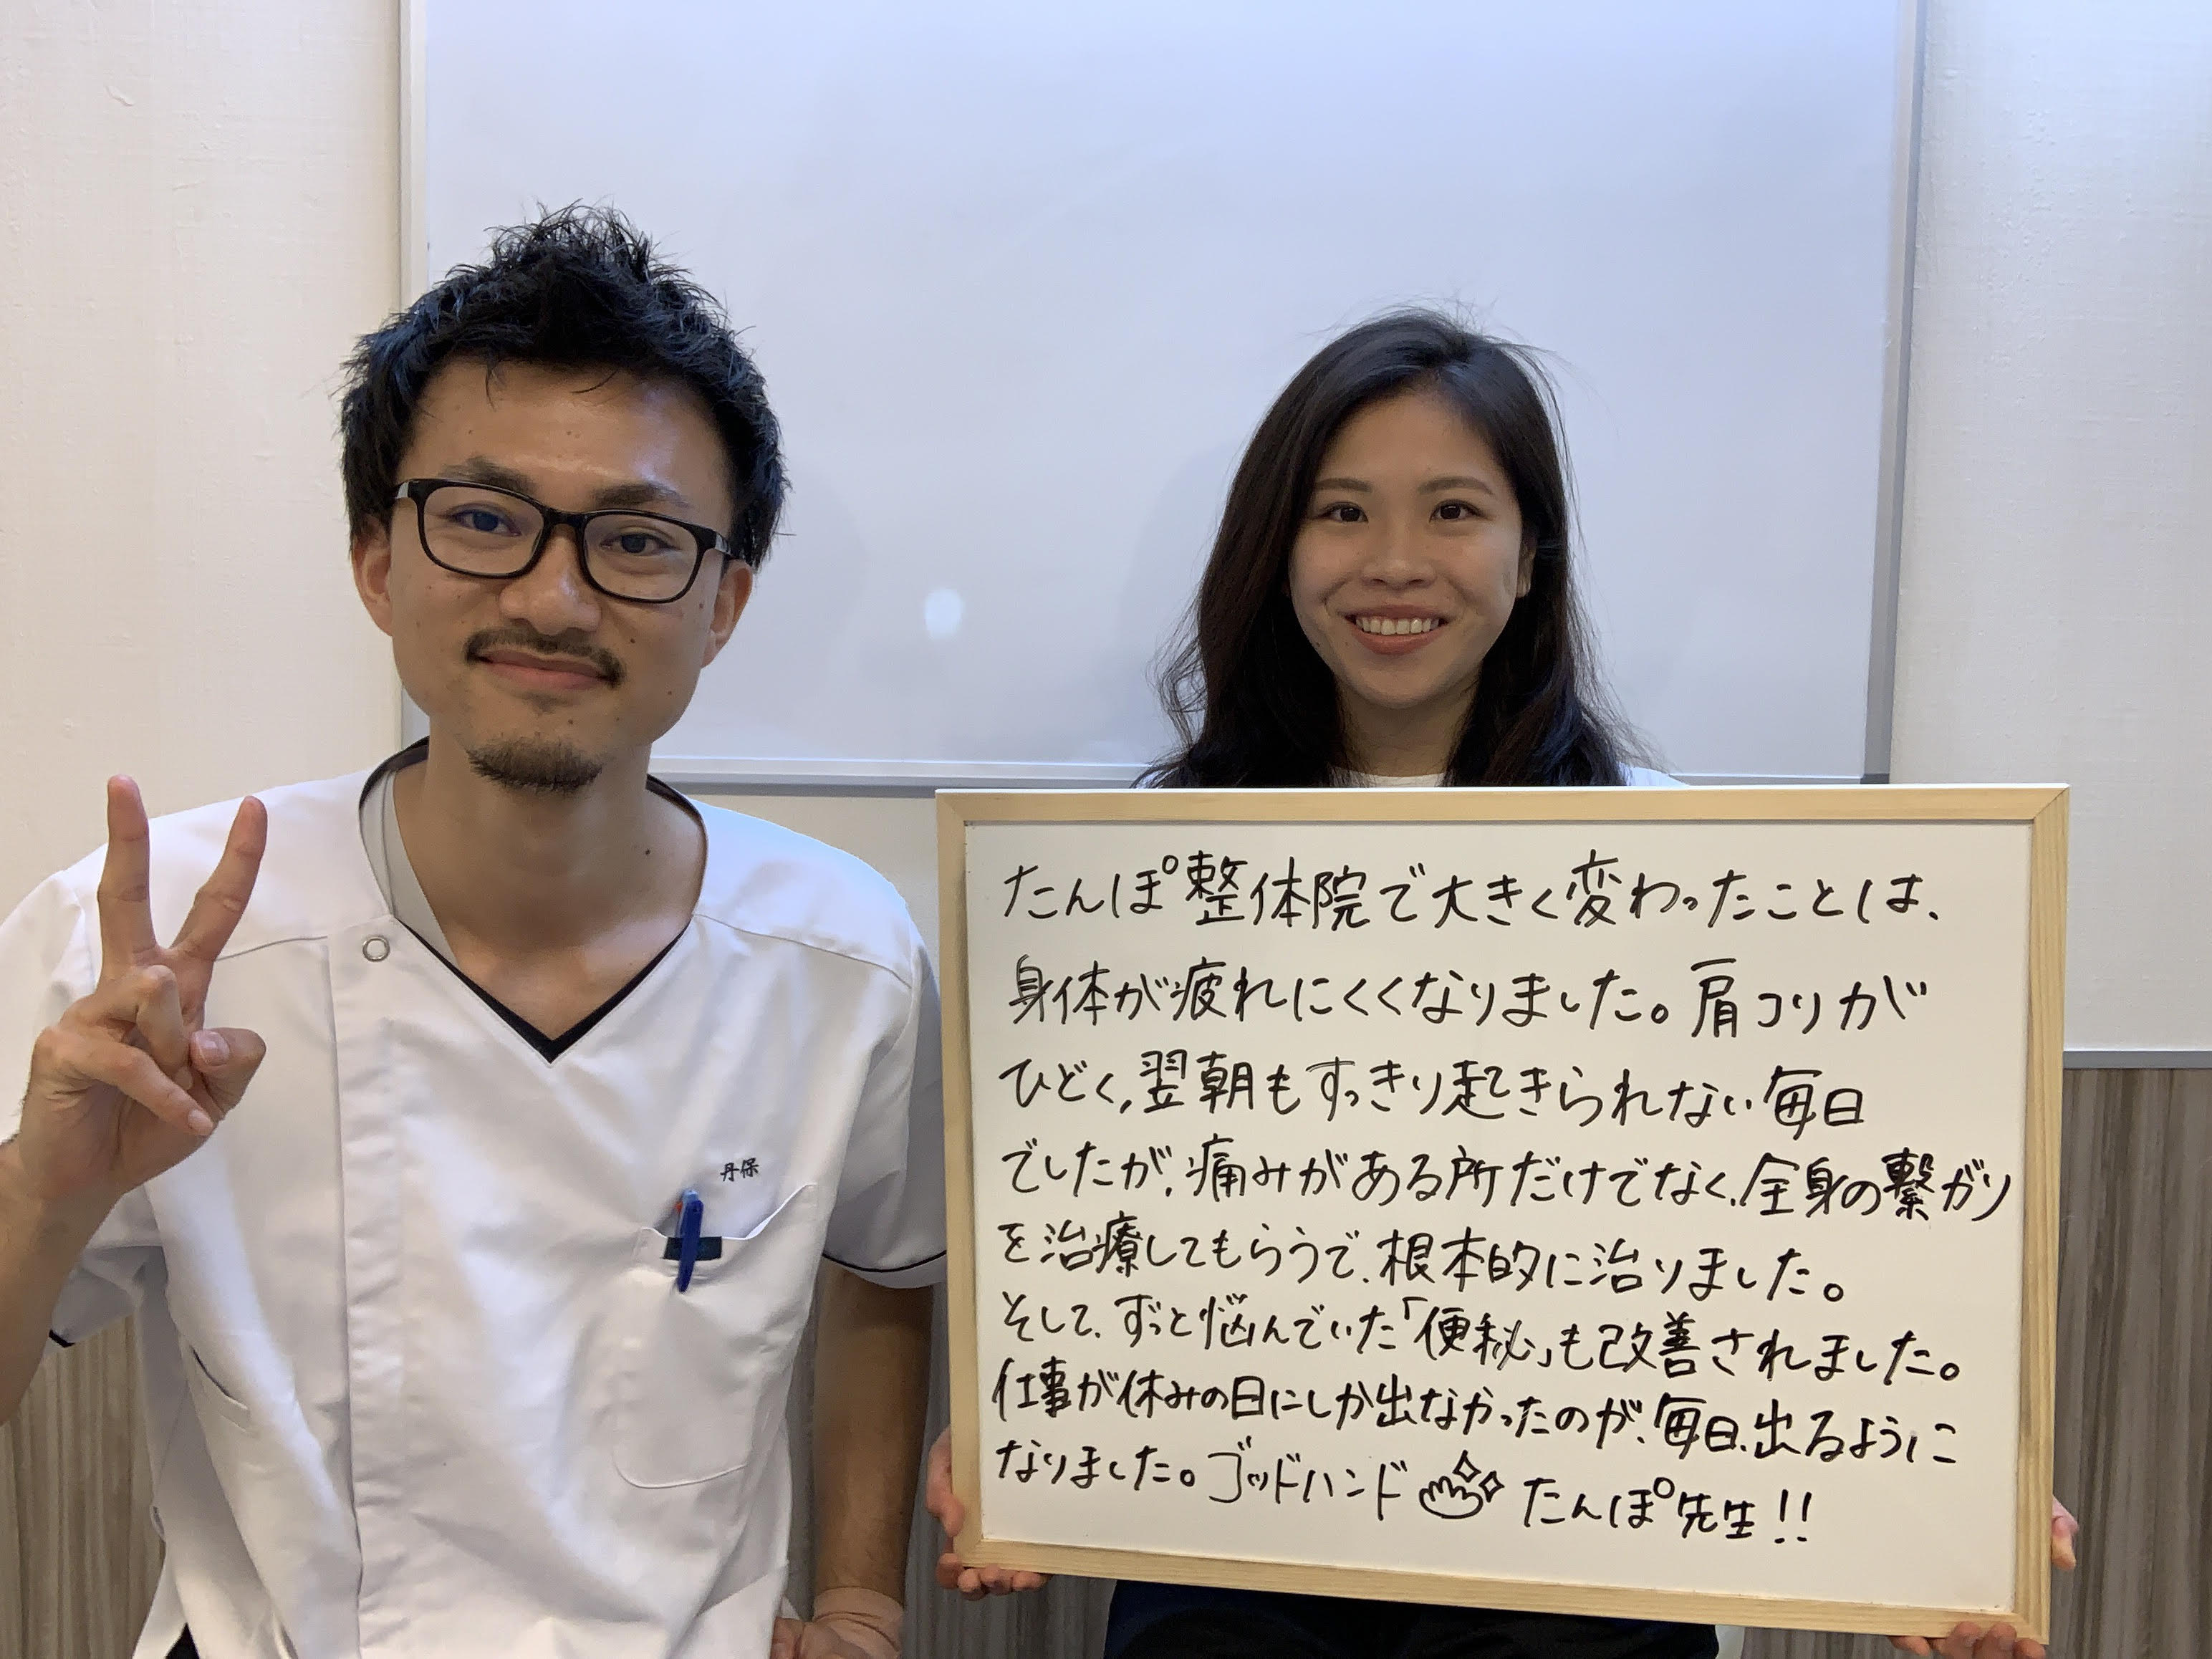 丹保
たんぽ整体院で大きく変わったことは、
身体が疲れにくくなりました。肩コリが
ひどく，翌朝もすっきり起きられない毎日
でしたが、痛みがある所だけでなく、全身の繋がり
を治療してもらうで、根本的に治りました。
そして、ずっと悩んでいた「便秘」も改善されました。
仕事が休みの日にしか出なかったのが、毎日、出るように
なりました。ゴッドハンド たんぽ先生!!